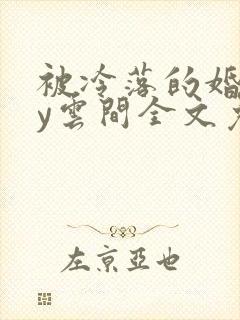 被冷落的婚
y雲間全文免
左京亞也